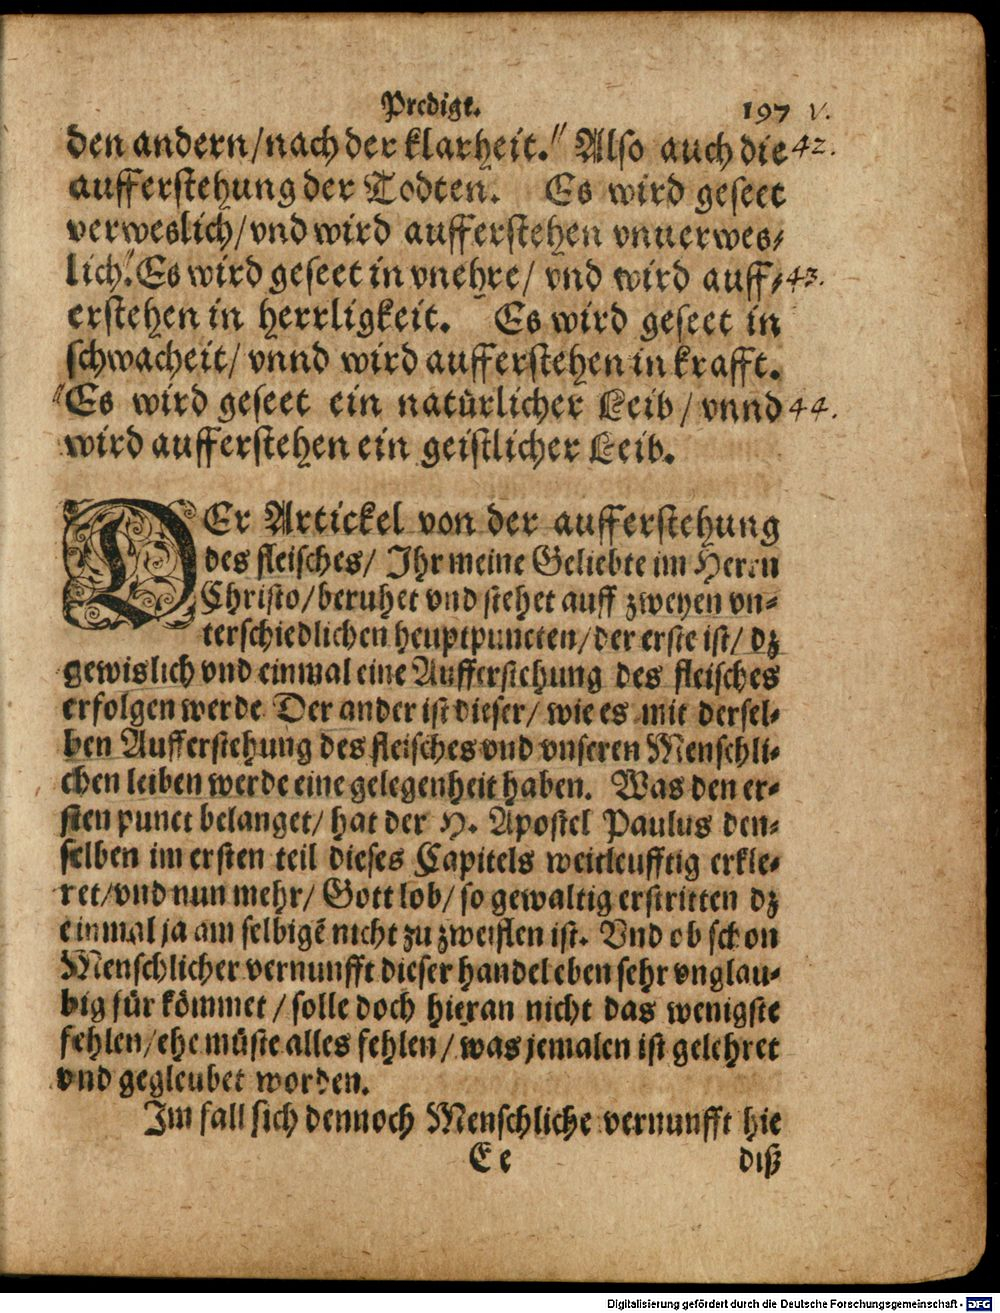 Predigt. 197 v.
den andern/nach der klarheit.“ Also auch die 42.
aufferstehung der Todten. Es wird geseet
verweslich/vnd wird aufferstehen vnuerwes⸗
lich.“Es wird geseet in vnehre/ vnd wird auff⸗ 43.
erstehen in herrligkeit. Es wird geseet in
schwacheit/ vnnd wird aufferstehen in krafft.
“Es wird geseet ein natürlicher Leib / vnnd 44.
wird aufferstehen ein geistlicher Leib.
DEr Artickel von der aufferstehung
des fleisches/ Ihr meine Geliebte im Herrn
Christo/beruhet vnd stehet auff zweyen vn⸗
terschiedlichen heuptpuncten/der erste ist/ dz
gewislich vnd einmal eine Aufferstehung des fleisches
erfolgen werde Der ander ist dieser/ wie es mit dersel⸗
ben Aufferstehung des fleisches vnd vnseren Menschli⸗
chen leiben werde eine gelegenheit haben. Was den er⸗
sten punct belanget/ hat der H. Apostel Paulus den⸗
selben im ersten teil dieses Capitels weitleufftig erkle⸗
ret/vnd nun mehr/ Gott lob/ so gewaltig erstritten dz
einmal ja am selbigē nicht zu zweiflen ist. Vnd ob schon
Menschlicher vernunfft dieser handel eben sehr vnglau⸗
big für kömmet / solle doch hieran nicht das wenigste
fehlen/ehe müste alles fehlen / was jemalen ist gelehret
vnd gegleubet worden.
Im fall sich dennoch Menschliche vernunfft hie
E e diß
Digitalisierung gefördert durch die Deutsche Forschungsgemeinschaft - DFG